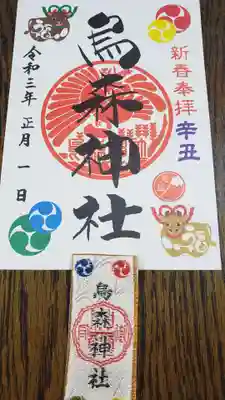 新春奉拝 辛丑
烏森神社
令和三年 正月 一日
烏
森
神
社